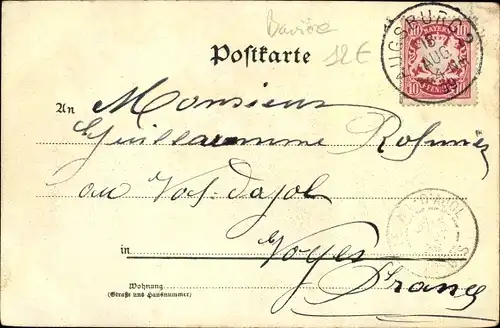 Bavière
12€
Postkarte
AUGSBURG 2
18
AUG
BAYERN
10
10
PFENNIG
An Monsieur
Guillaumme Rohmer
au Val-d'ajol
in Vosges
France
Wohnung
(Straße und Hausnummer)